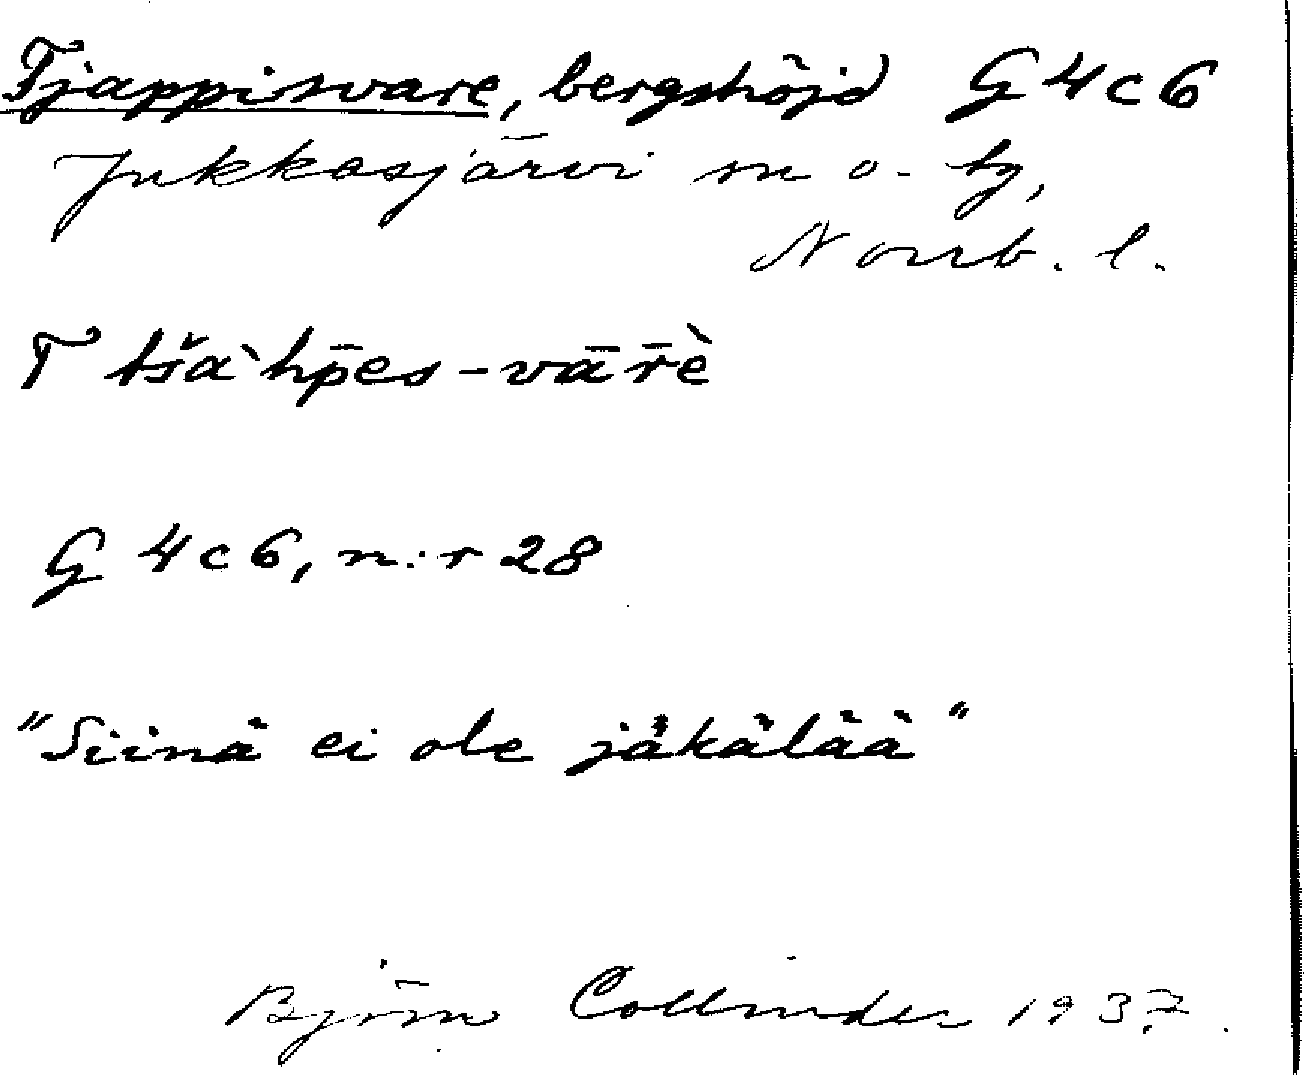 Tjappisvare, bergshöjd G4c6
Jukkasjärvi sn o. tg,
Norrb. l.
T tšàhp̄es-vār̄è
G 4c6, n:r 28
"Siinä ei ole jäkälää"
Björn Collinder 1937.